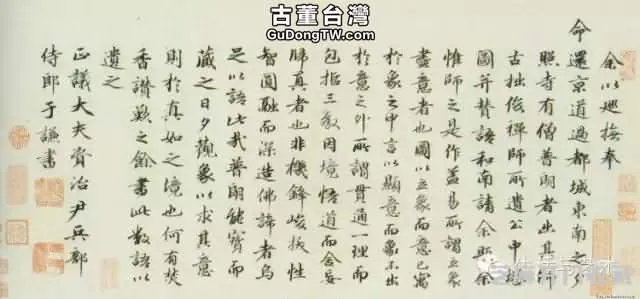 古董台灣
GuDongTW.com
余以巡撫奉
命還京道過都城東南之夕
照寺有僧普朗者出其師
古拙俊禪師所遺公中塔
圖并贊語和南請余題余
惟師之是作蓋易所謂立象
盡意者也圖以立象而意已寓
於象之中言以顯意而象不出
於意之外所謂貫通一理而
包括三教因境悟道而舍妄
歸真者也非機鋒峻拔性
智圓融而深造佛諦者烏
足以語此哉普朗能寶而
藏之日夕觀象以求其意
則於真如之境也何有焚
香讚歎之餘書此數語以
遺之
正議大夫資治尹兵部
侍郎于謙書